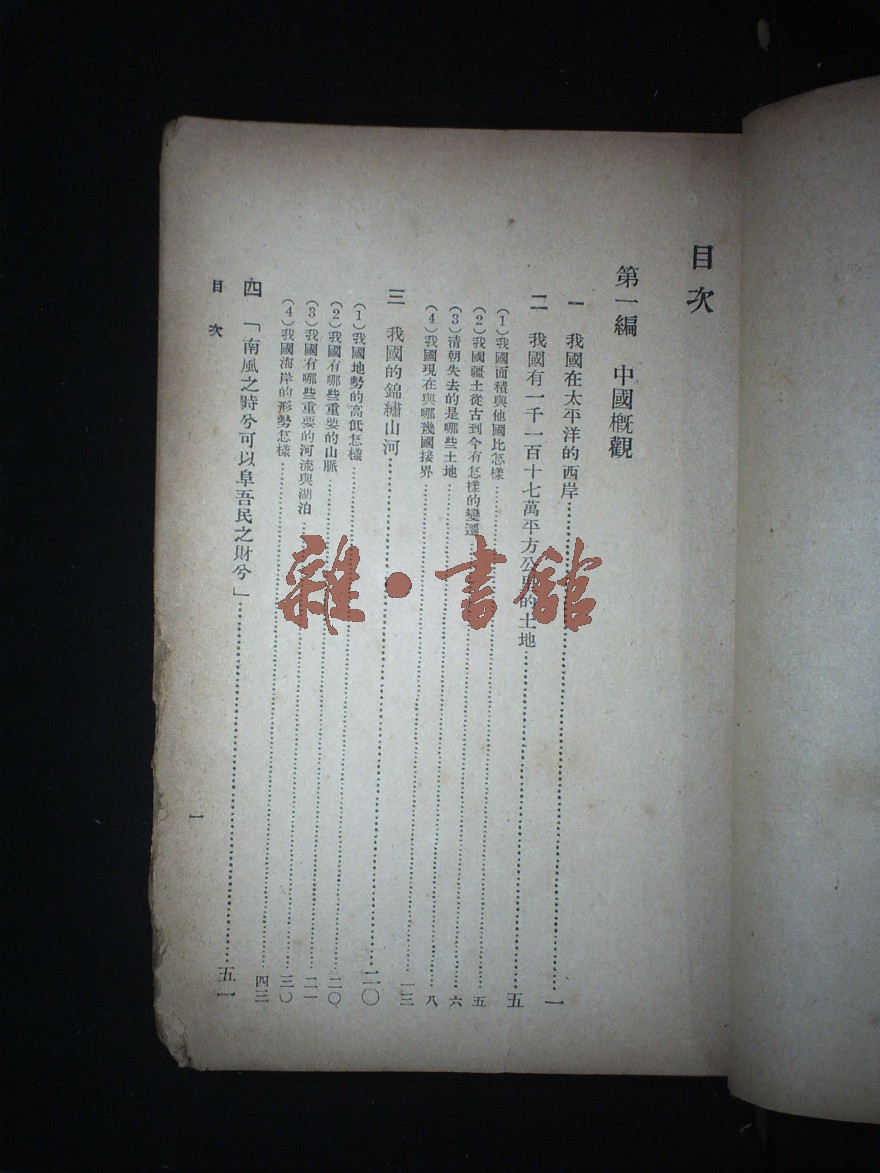 目次
第一編 中國概觀
一 我國在太平洋的西岸……一
二 我國有一千一百十七萬平方公里的土地……五
(1)我國面積與他國比怎樣……五
(2)我國疆土從古到今有怎樣的變遷……六
(3)清朝失去的是哪些土地……八
(4)我國現在與哪幾國接界……一三
三 我國的錦繡山河……二〇
(1)我國地勢的高低怎樣……二〇
(2)我國有哪些重要的山脈……二一
(3)我國有哪些重要的河流與湖泊……三〇
(4)我國海岸的形勢怎樣……四三
四 「南風之時兮可以阜吾民之財兮」……五一
目次
一
雜·書館